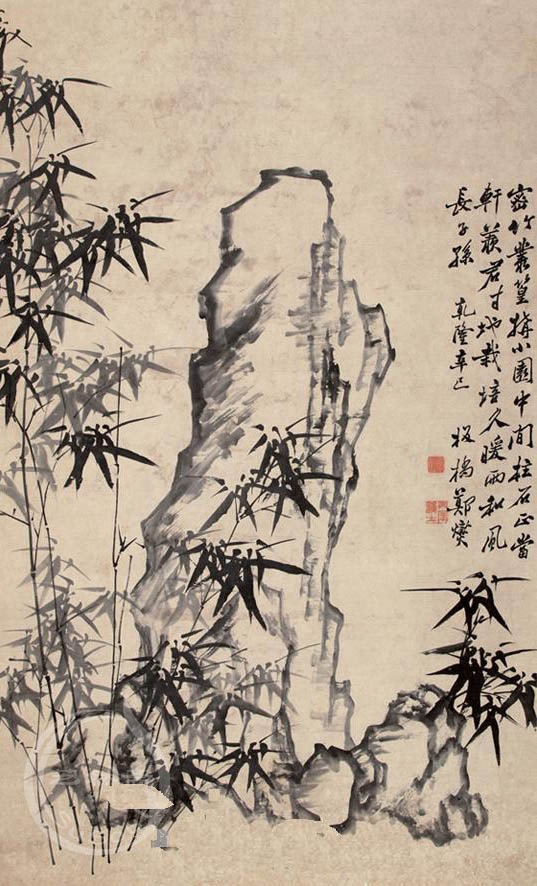 密竹叢篁搆小園中間柱石正當
軒羨君寸地栽培久暖雨和風
長子孫 乾隆辛巳 板橋鄭燮